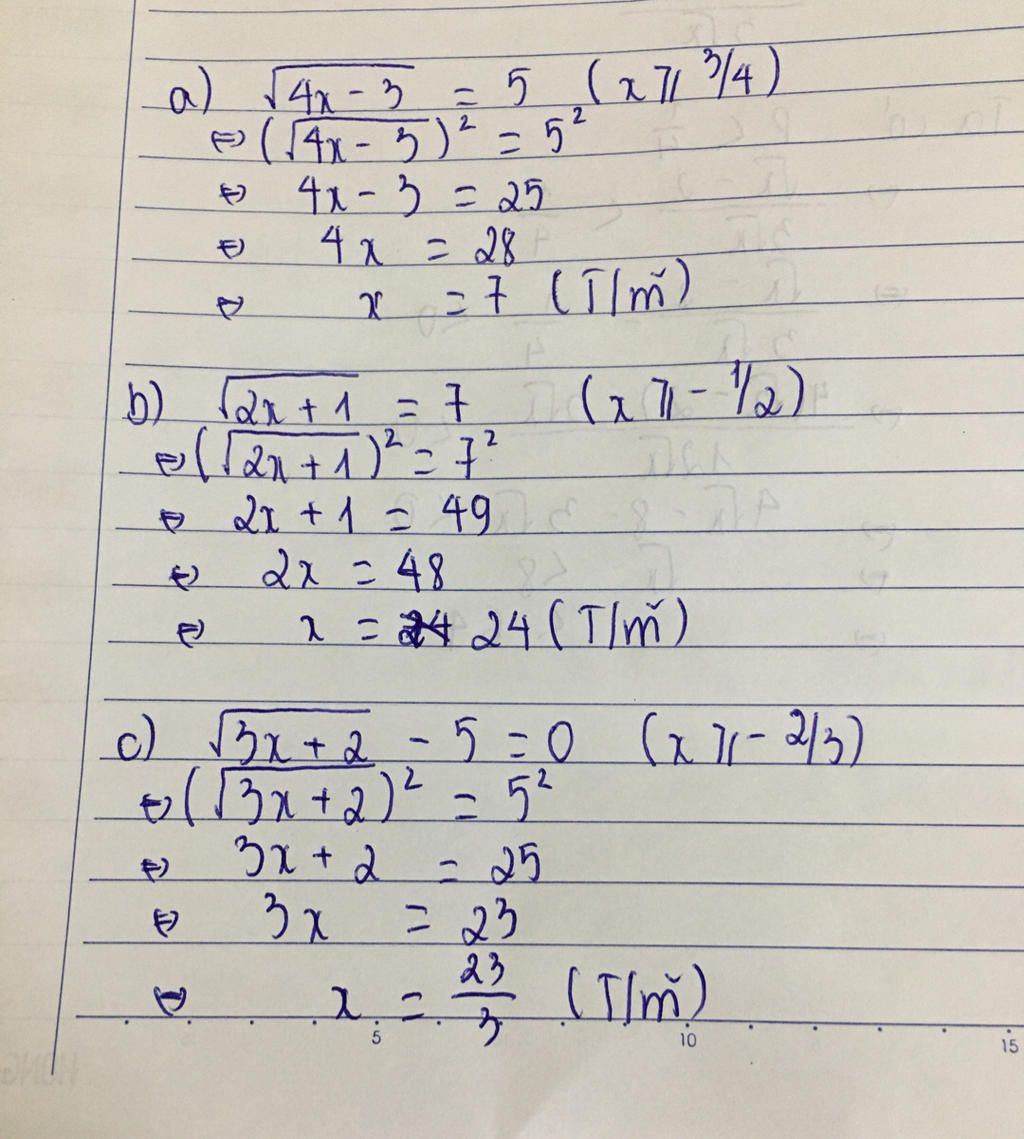 a) √(4x - 3) = 5 (x ⩾ 3/4)
⇔ (√(4x - 3))² = 5²
⇔ 4x - 3 = 25
⇔ 4x = 28
⇔ x = 7 (T/m̃)
b) √(2x + 1) = 7 (x ⩾ - 1/2)
⇔ (√(2x + 1))² = 7²
⇔ 2x + 1 = 49
⇔ 2x = 48
⇔ x = 24 (T/m̃)
c) √(3x + 2) - 5 = 0 (x ⩾ - 2/3)
⇔ (√(3x + 2))² = 5²
⇔ 3x + 2 = 25
⇔ 3x = 23
⇔ x = 23/3 (T/m̃)
5 10 15